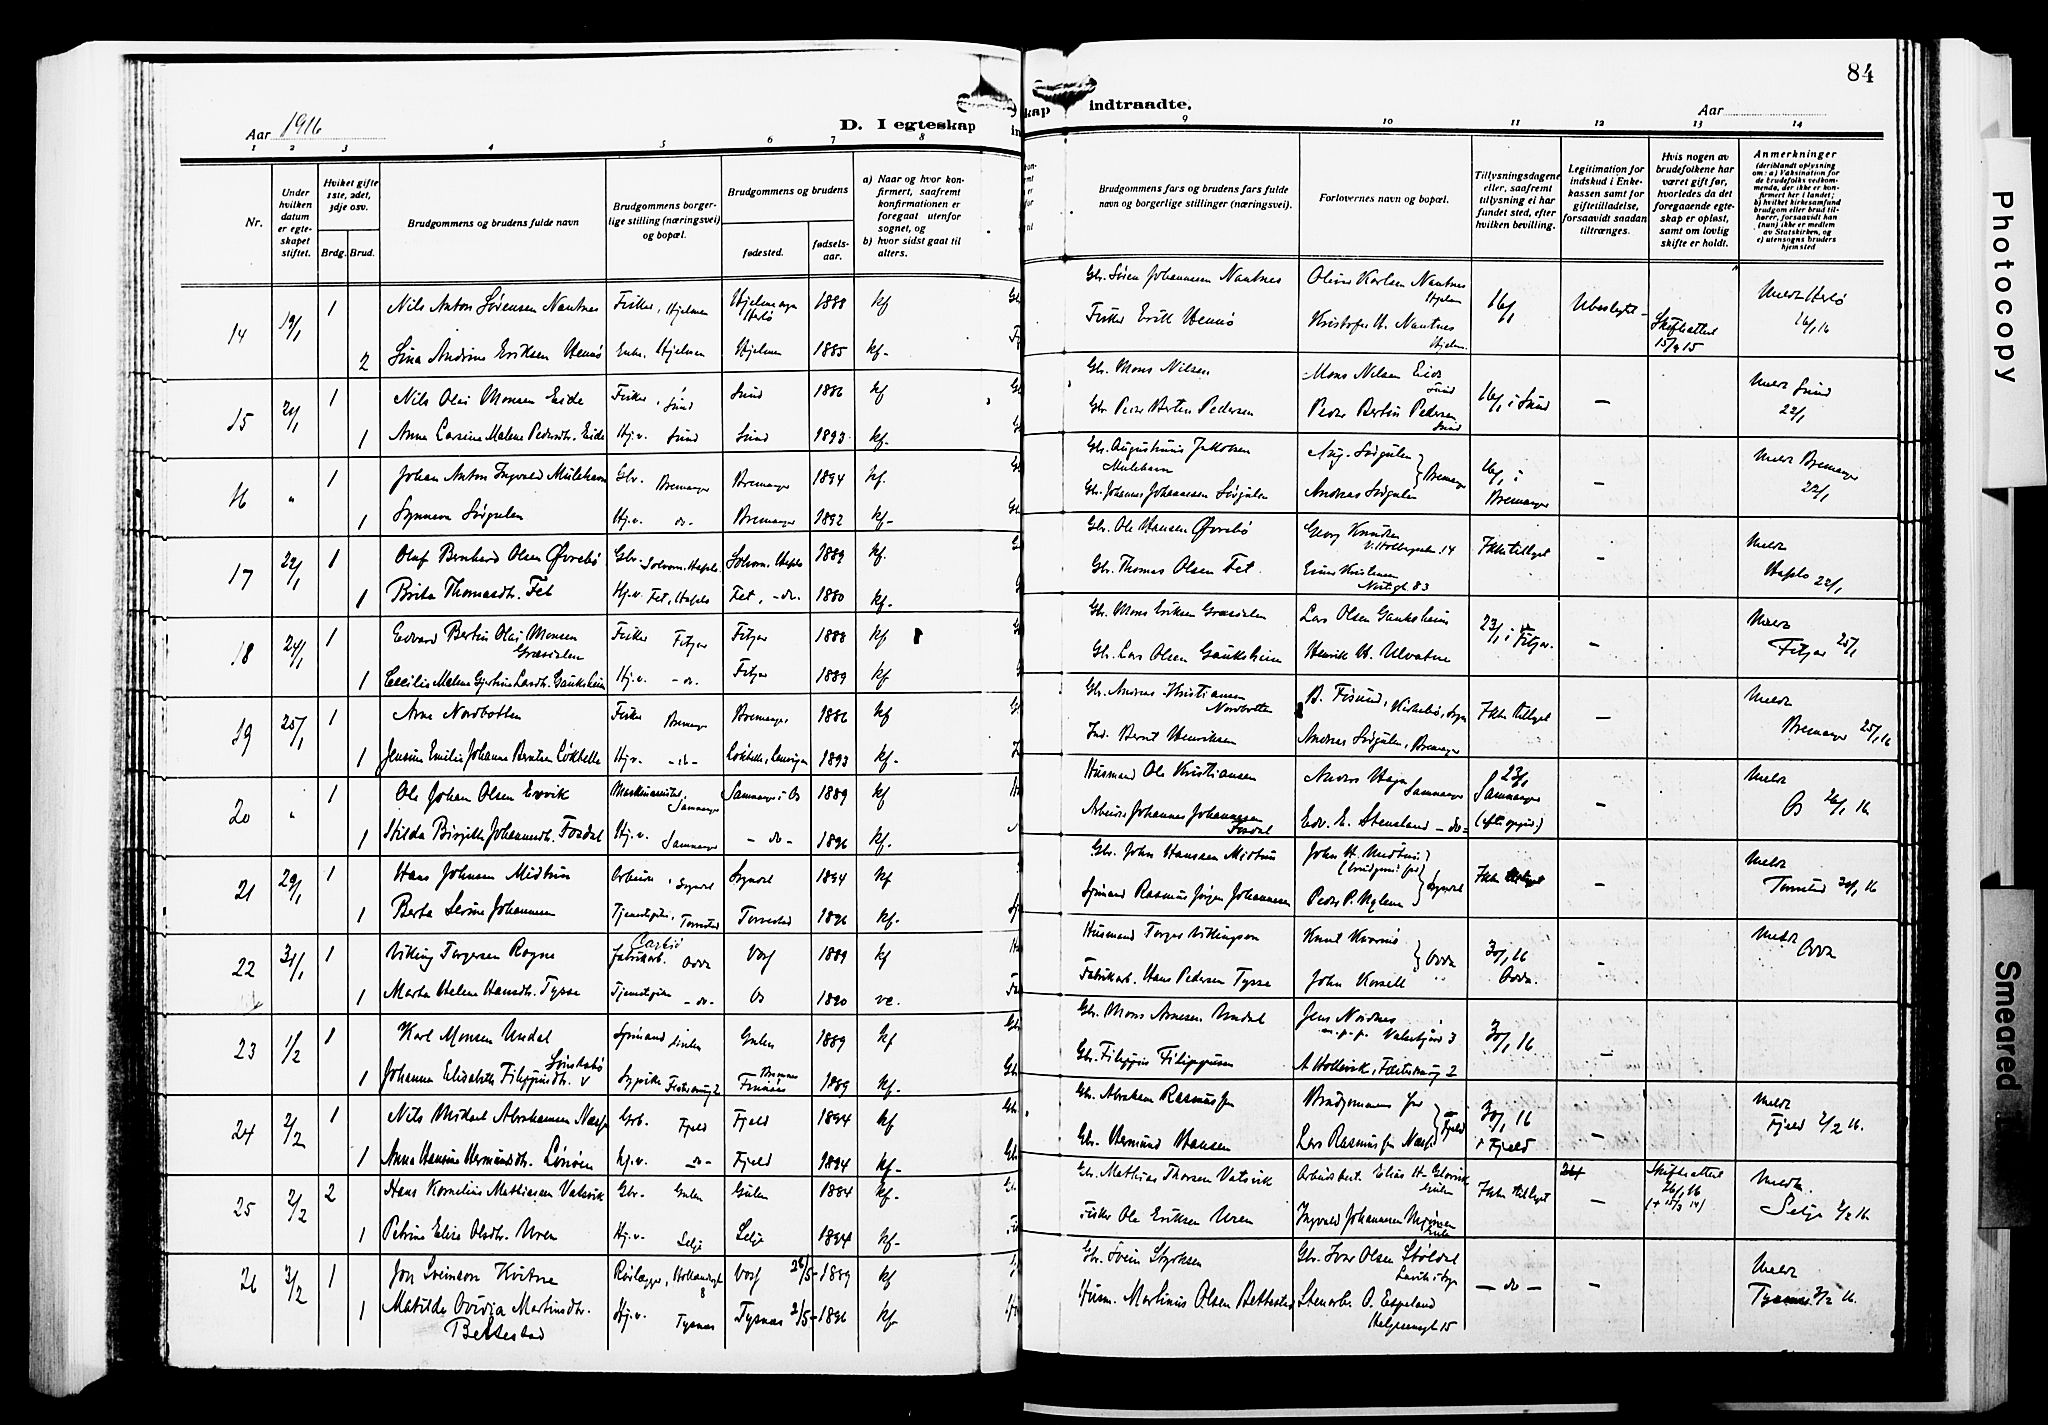 84
Aar 1916
D. I egteskap
kap indtraadte.
Aar
1 2 3 4 5 6 7 8 9 10 11 12 13 14
Nr.
Under hvilken datum er egteskapet stiftet.
Hviket gifte 1ste, 2det, 3dje osv.
Brdg. Brud.
Brudgommens og brudens fulde navn
Brudgommens borgerlige stilling (næringsvei) og bopæl.
Brudgommens og brudens
fødested.
fødsels-aar.
a) Naar og hvor konfirmert, saafremt konfirmationen er foregaat utenfor sognet, og
b) hvor sidst gaat til alters.
Brudgommens fars og brudens fars fulde navn og borgerlige stillinger (næringsvei).
Forlovernes navn og bopæl.
Tillysningsdagene eller, saafremt tillysning ei har fundet sted, efter hvilken bevilling.
Legitimation for indskud i Enkekassen samt for giftetilladelse, forsaavidt saadan tiltrænges.
Hvis nogen av brudefolkene har været gift før, hvorledes da det foregaaende egteskap er opløst, samt om lovlig skifte er holdt.
Anmerkninger
(deriblandt oplysning om: a) Vaksination for de brudefolks vedkommende, der ikke er konfirmert her i landet; b) hvilket kirkesamfund brudgom eller brud tilhører, forsaavidt han (hun) ikke er medlem av Statskirken, og c) utensogns bruders hjemsted
14 19/1 1 Nils Anton Sørensen Nautnes Fisker, Hjelmen Hjelmen sogn Herlø 1888 kf Gbr. Sören Johannesen Nautnes Oliver Karlsen Nautnes Hjelm 16/1 Ubeslegtet Skifteattest 15/9 15 Meldt Herlø 26/1 16
2 Sina Andrine Eriksen Hennø Enke. Hjelmen Hjelmen 1885 kf. Fisker Erik Hennø Kristofer H. Nautnes Hjelm.
15 21/1 1 Nils Olai Monsen Eide Fisker, Sund Sund 1886 kf Gbr. Mons Nilsen Mons Nilsen Eide Sund 16/1 i Sund — Meldt Sund 22/1
1 Anna Larsine Malene Pedersdtr. Eide Hj.v. Sund Sund 1893 kf. Gbr Peder Berten Pedersen Peder Bertin Pedersen Sund
16 " 1 Johan Anton Ingvald Mulehavn Gbr. Bremanger Bremanger 1894 kf. Gbr. Augustinus Jakobsen Mulehavn Aug. Sørgulen } Bremanger 16/1 i Bremanger — Meldt Bremanger 22/1
1 Synneva Sørgulen Hj.v. do- Bremanger 1892 kf- Gbr. Johannes Johannesen Sørgulen Andreas Sørgulen
17 22/1 1 Oluf Bernhard Olsen Øvrebø Gbr. Solvorn, Hafslo Solvorn, Hafslo 1889 kf. Gbr. Ole Hansen Øvrebø Georg Knudsen 14 Ikke tillyst - Meldt Hafslo 22/1
1 Brita Thomasdtr. Fet Hj.v. Fet, Hafslo Fet, -do. 1880 kf. Gbr. Thomas Olsen Fet Einar Kristensen 83
18 24/1 1 Edvard Bertin Olai Monsen Græsdalen Fisker Fitjar Fitjar 1888 kf Gbr. Mons Eriksen Græsdalen Lars Olsen Gauksheim 23/1 i Fitjar. — Meldt Fitjar 25/1
1 Cecilie Malene Gjertine Larsdtr. Gauksheim Hj.v. -do. Fitjar 1889 kf Gbr. Lars Olsen Gauksheim Henrik H. Ulvatne
19 25/1 1 Arne Nordbotten Fisker Bremanger Bremanger 1886 kf Gbr. Andreas Kristiansen Nordbotten B. Fosund, Kirkebø, Sogn Ikke tillyst — Meldt Bremanger 25/1 16
1 Jensine Emilie Johanne Berntsen Løkbelle Hj.v. -do- 1893 kf. Ind. Bernt Henriksen Andreas Sørgulen, Bremanger
20 " 1 Ole Johan Olsen Evvik Samnanger Samnanger i Os 1889 kf Husmand Ole Kristiansen Anders Hage Samnanger 23/1 Samnanger (efter opgave) — Meldt Os 26/1 16
1 Hilda Birgitte Johannesdtr. Fosdal Hj.v. Samnanger -do- 1896 kf. Arbeider Johannes Johannesen Fosdal Edv. E. Stensland -do-
21 29/1 1 Hans Johnsen Midtun Arbeider, Sogndal Sogndal 1894 kf Gbr. John Hanssen Midtun John H. Midtun (brudgommens far) } Sogndal Ikke tillyst — Meldt Torvestad 30/1 16
1 Berta Serine Johannesen Tjenestepike, Torvestad Torvestad 1896 kf. Sjømand Rasmus Jørgen Johannesen Peder P. Uglum
22 31/1 1 Viking Torgersen Rogne Carbid Fabrikarb. Odda Voss 1889 kf Husmand Torger Vikingson Knut Kvarnø } Odda 30/1 16 Odda. — Meldt Odda
1 Marta Helene Hansdtr. Tysse Tjenestepike -do- Os 1890 vc. Fabrikarb. Hans Pedersen Tysse John Korsell
23 1/2 1 Karl Monsen Undal Sjømand Gulen Gulen 1889 kf Gbr. Mons Arnesen Undal Jens Nordnes 3 30/1 16 —
1 Johanne Elisabeth Filippusdtr. Sønstabø Sypike 2 Bremnes Finnaas 1889 kf. Gbr. Filippus Filippussen A Hollevik, 2
24 2/2 1 Nils Mikael Abrahamsen Næsse Grb. Fjeld Fjeld 1894 kf Gbr. Abraham Rasmussen Brudgommens far } Fjeld 30/1 16 i Fjeld — Meldt Fjeld 2/2 16.
1 Anna Hansine Hermundsdtr. Lønøen Hj.v. -do- Fjeld 1894 kf- Gbr. Hermund Hansen Lars Rasmussen Næsse
25 2/2 2 Hans Kornelius Mathiassen Vatsvik Gbr. Gulen Gulen 1884 kf. Gbr. Mathias Thorsen Vatsvik Arbeidsbest. Elias H. Glosvik Gulen Ikke tillyst — Skifteattest 26/1 16 (+ 15/3 14) Meldt. Selje 2/2 16.
1 Petrine Elise Olsdtr. Uren Hj.v. Selje Selje 1894 kf- Fisker Ole Eriksen Uren Ingvald Johannesen
26 3/2 1 Jon Sveinson Kvitne Rørlægger, Hollendergt 8 Voss 26/5- 1889 kf Gbr. Svein Styrksen Gbr. Ivar Olsen Støldal Lavik i Sogn — do — — Meldt Tysnes 3/2 16.
1 Matilde Ovidia Martinsdtr. Bettestad Hj.v. Tysnes Tysnes 2/5- 1896 kf- Husm. Martinus Olsen Bettestad Stenarb. O. Espeland Helgesensgt 15
Photocopy
Smeared